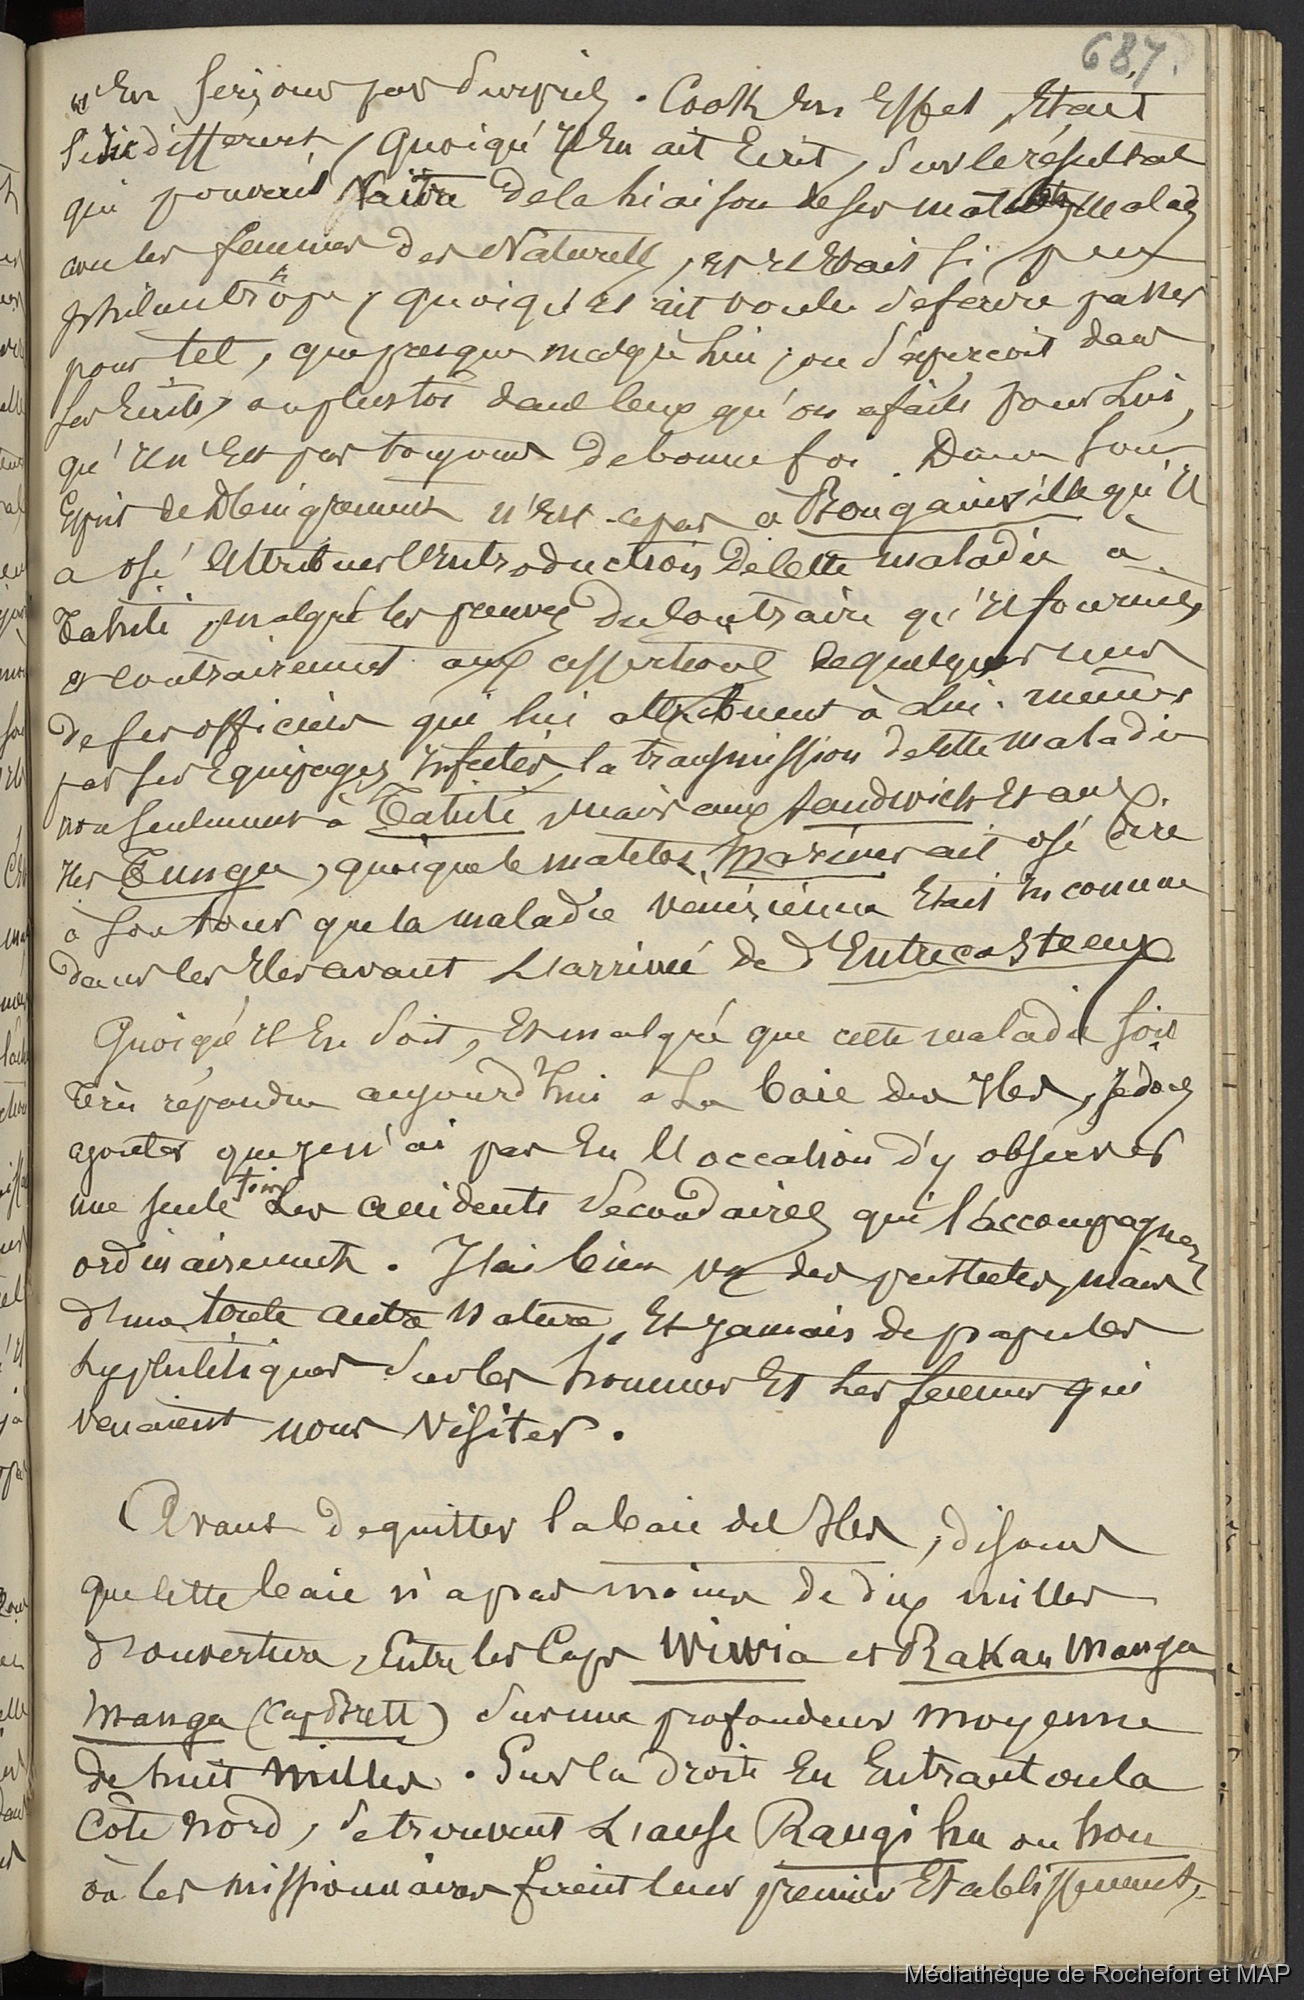 687.
n'en serions pas surpris. Cook en effet, était
si indifférent, quoiqu'il en ait écrit, sur le résultat
qui pouvait naitre de la liaison de ses matelots malades
avec les femmes des Naturels, et il était si peu
philantrope, quoiqu'il ait voulu se faire passer
pour tel, que presque malgré lui, on s'aperçoit dans
ses écrits, ou plustôt dans ceux qu'on a faits pour lui,
qu'il n'est pas toujours de bonne foi. Dans son
esprit de dénigrement n'est-ce pas à Bougainville qu'il
a osé attribuer l'introduction de cette maladie à
Tahiti, malgré les preuves du contraire qu'il fournit,
et contrairement aux assertions de quelques uns
de ses officiers qui lui attribuent à lui-même
par ses équipages infectés, la transmission de cette maladie
non seulement à Tahiti, mais aux Sandwich et aux
iles Tunga, quoique le matelot Mariner ait osé dire
à son tour que la maladie vénérienne était inconnue
dans les iles avant l'arrivée de d'Entrecasteaux.
Quoiqu'il en soit, et malgré que cette maladie soit
très répandue aujourd'hui à la baie des Iles, je dois
ajouter que je n'ai pas eu l'occation d'y observer
une seule fois les accidents secondaires qui l'accompagnent
ordinairement. J'ai bien vu des pustules, mais
d'une toute autre nature, et jamais de papules
syphilitiques sur les hommes et les femmes qui
venaient nous visiter.
Avant de quitter la baie des Iles, disons
que cette baie n'a pas moins de dix milles
d'ouverture, entre les Caps Wiwia et Rakau Manga
Manga (Cap Brett) sur une profondeur moyenne
de huit milles. Sur la droite en entrant ou la
côte nord, se trouvent l'anse Rangi hu ou hou
où les missionnaires firent leur premier établissement,
Médiathèque de Rochefort et MAP